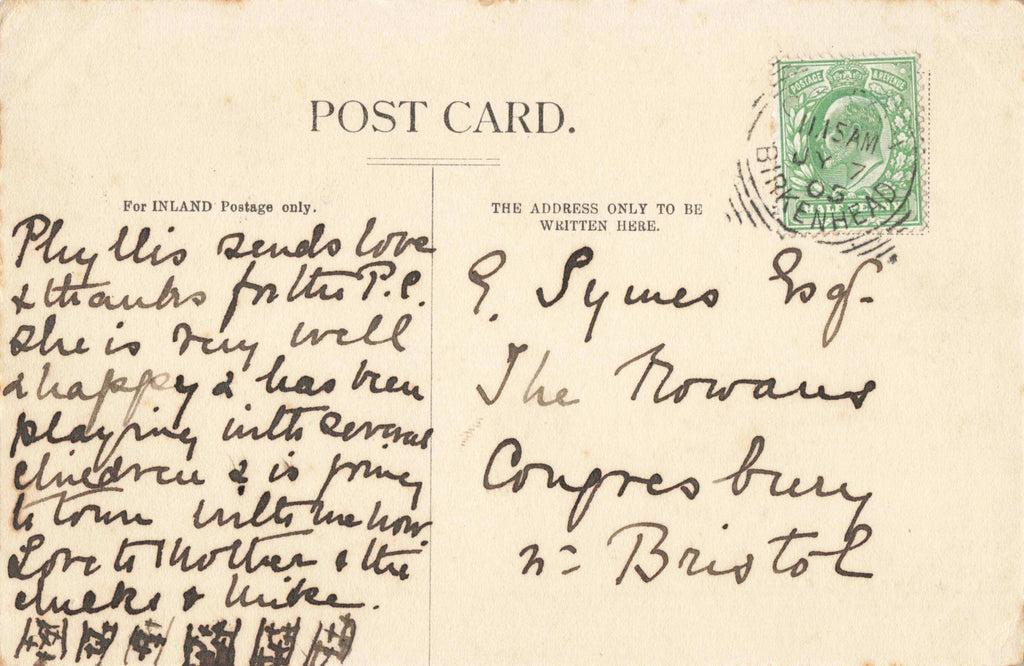 POST CARD.
For INLAND Postage only.
THE ADDRESS ONLY TO BE
WRITTEN HERE.
POSTAGE & REVENUE
11 15AM
JY 7
05
BIRKENHEAD
Phyllis sends love
& thanks for the P.C.
She is very well
& happy & has been
playing with several
children & is going
to town with me now
Love to Mother & the
chicks & Mike.
G. Symes Esq.
The Rowans
Congresbury
nr Bristol